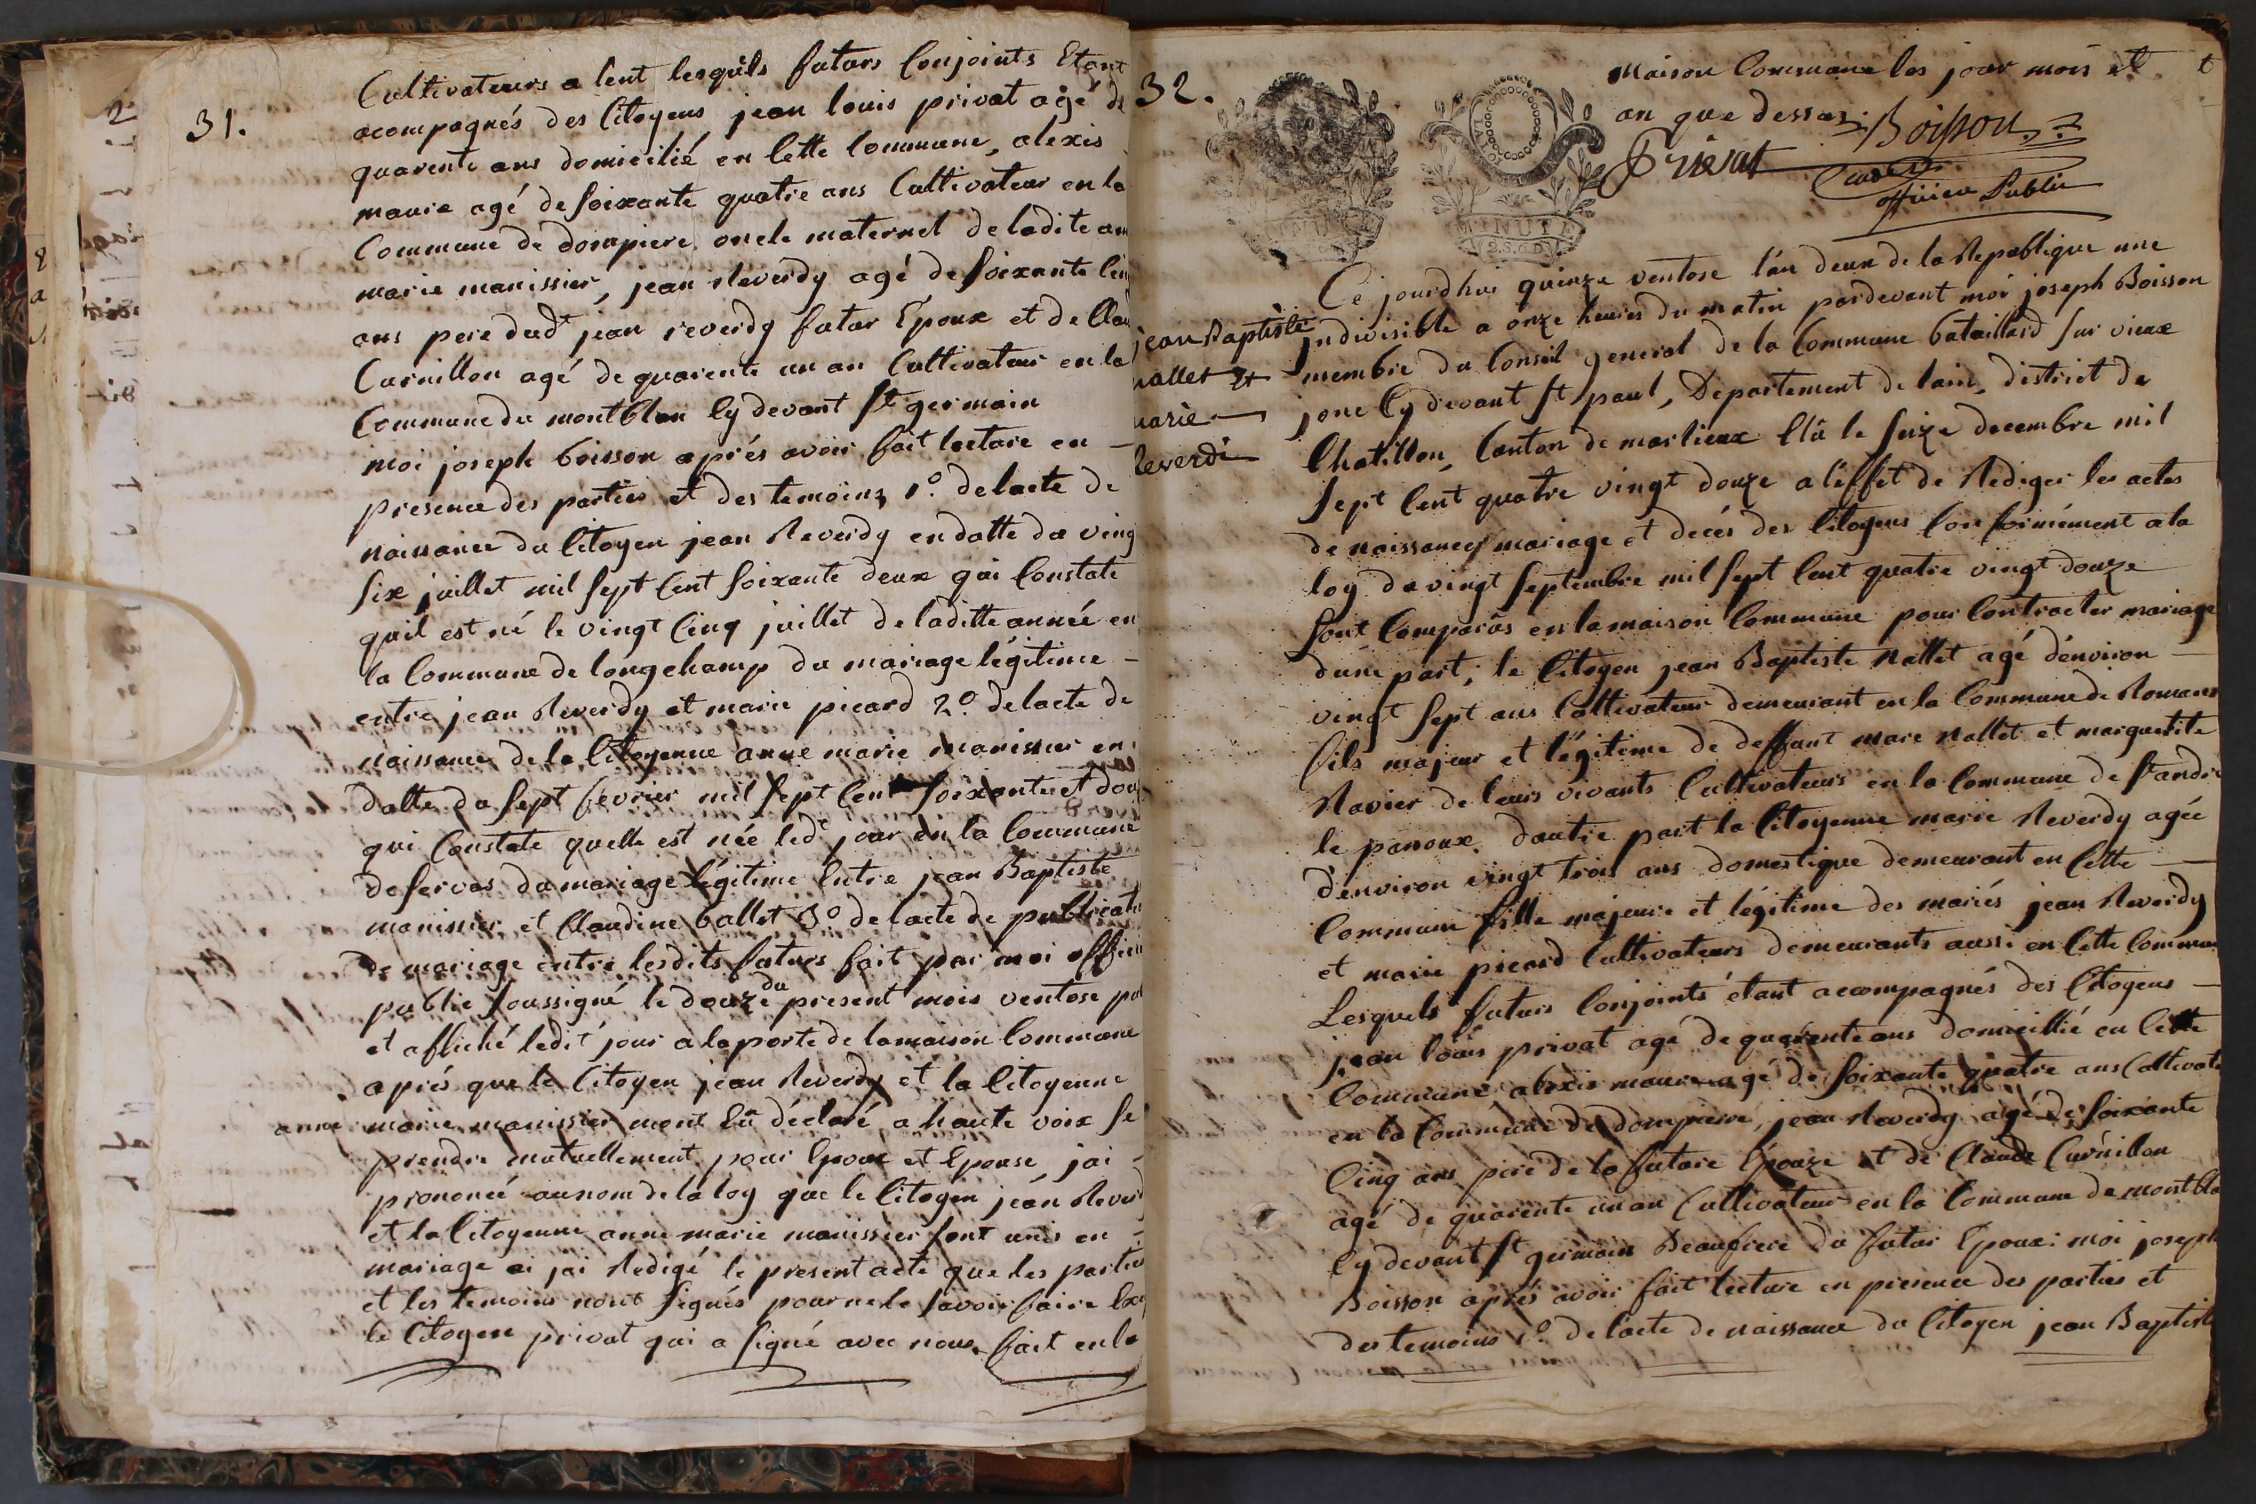 31.
Cultivateurs a lent lesquels futurs Conjoints Etant
acompagnés des Citoyens jean louis privat agé de
quarente ans domicilié en Cette Commune, alexis
maurie agé de soixante quatre ans Cultivateur en la
Commune de dompiere oncle maternel de ladite
marie manissier, jean Reverdy agé de soixante
ans pere dudt jean reverdy futur Epoux et de
Curnillon agé de quarente un an Cultivateur en la
Commune du montblan Cy devant St germain
moi joseph boisson aprés avoir fait lecture en
presence des parties et des temoins 1o. de lacte de
naissance du Citoyen jean Reverdy en datte du ving
six juillet mil sept Cent soixante deux qui Constate
quil est né le vingt Cinq juillet de laditte année en
la Commune de longchamp du mariage légitime
entre jean Reverdy et marie picard 2o. de lacte de
naissance de la Citoyenne anne marie manissier en
datte du sept fevrier mil sept Cent soixante et
qui Constate quelle est née ledt jour en la Commune
de servas du mariage légitime Entre jean Baptiste
manissier et Claudine ballet 3o de lacte de
de mariage entre lesdits futurs fait par moi
public soussigné le douze du present mois ventose
et affiché ledit jour a la porte de la maison Commune
aprés que le Citoyen jean Reverdy et la Citoyenne
anne marie manissier mont Eu déclaré a haute voix se
prendre mutuellement pour Epoux et Epouse, jai
prononcé au nom de la loy que le Citoyen jean
et la Citoyenne anne marie manissier sont unis en
mariage ai jai Redigé le present acte que les
et les temoins nont signés pour ne le savoir faire
le Citoyen privat qui a signé avec nous fait en la
32.
Maison Commune les jour mois et
an que dessus
Boisson
Privat
officier Public
MINUTE
jean Baptiste
nallet et
marie
Reverdi
Ce jourdhui quinze ventose l'an deux de la Republique une
indivisible a onze heures du matin pardevant moi joseph Boisson
membre du Conseil general de la Commune bataillard sur vieux
jonc Cy devant St paul, Departement de lain, district de
Chatillon, Canton de marlieux Elû le seize decembre mil
sept Cent quatre vingt douze a l'effet de Rediger les actes
de naissances mariage et decés des Citoyens Conformément a la
loy du vingt septembre mil sept Cent quatre vingt douze
sont Comparûs en la maison Commune pour Contracter mariage
dune part, le Citoyen jean Baptiste nallet agé d'environ
vingt sept ans Cultivateur demeurant en la Commune de Romans
fils majeur et légitime de deffunt marc nallet et marguerite
Navier de leurs vivants Cultivateurs en la Commune de St andré
le panoux. dautre part la Citoyenne marie Reverdy agée
d'environ vingt trois ans domestique demeurant en Cette
Commune fille majeure et légitime des mariés jean Reverdy
et marie picard Cultivateurs demeurants aussi en Cette
Lesquels futurs Conjoints étant acompagnés des Citoyens
jean louis privat agé de quarente ans domicillié en Cette
Commune alexis maurie agé de soixante quatre ans
en la Commune de dompierre, jean Reverdy agé de soixante
Cinq ans pere de la future Epouze et de Claude Curnillon
agé de quarente un an Cultivateur en la Commune de
Cy devant St germain Beaufrere du futur Epoux: moi joseph
Boisson aprés avoir fait lecture en presence des parties et
des temoins 1o. de l'acte de naissance du Citoyen jean Baptiste